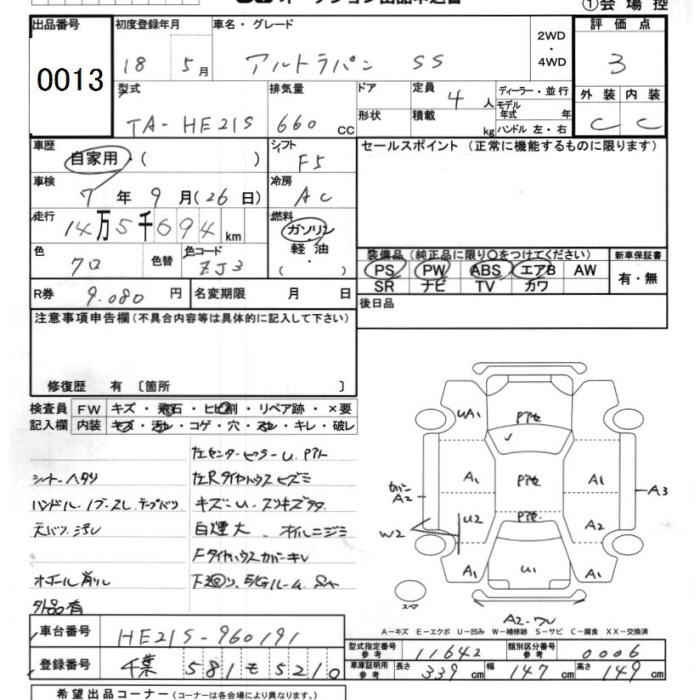 ①会場控
出品番号
0013
初度登録年月
18 5月
車名・グレード
アルトラパン SS
2WD
・
4WD
評価点
3
型式
TA-HE21S
排気量
660 cc
ドア
形状
定員
4人
積載
kg
ディーラー・並行
モデル
年式 年
ハンドル 左・右
外装 内装
C C
車歴
自家用・( )
シフト
F5
車検
7年9月(26日)
冷房
AC
走行
14万5千694km
燃料
ガソリン
軽油
・
( )
色
クロ
色替
色コード
ZJ3
R券
9.080円
名変期限 月 日
セールスポイント (正常に機能するものに限ります)
装備品 (純正品に限り○をつけてください)
PS PW ABS エアB AW
SR ナビ TV カワ
新車保証書
有・無
後日品
注意事項申告欄(不具合内容等は具体的に記入して下さい)
修復歴 有〔箇所 〕
検査員
記入欄
FW キズ・飛石・ヒビ割・リペア跡・×要
内装 キズ・汚レ・コゲ・穴・スレ・キレ・破レ
シートヘタリ
天バリ汚レ
外品有
左センターピラーU. PアセR
キズ・U.
白煙大 オイルニジミ
下廻り、E/Gルーム サビ
UA1
Pアセ
A1
Pアセ
A1
A2
A3
W2
U2
Pアセ
A2
A1
U1
A1
スペア
A-キズ E-エクボ U-凹み W-補修跡 S-サビ C-腐食 XX-交換済
車台番号
HE21S-960191
登録番号
千葉 581 モ 5210
型式指定番号
参考
11642
類別区分番号
参考
0006
車庫証明用
参考
長さ
339cm
幅
147cm
高さ
149cm
希望出品コーナー (コーナーは各会場により異なります。)